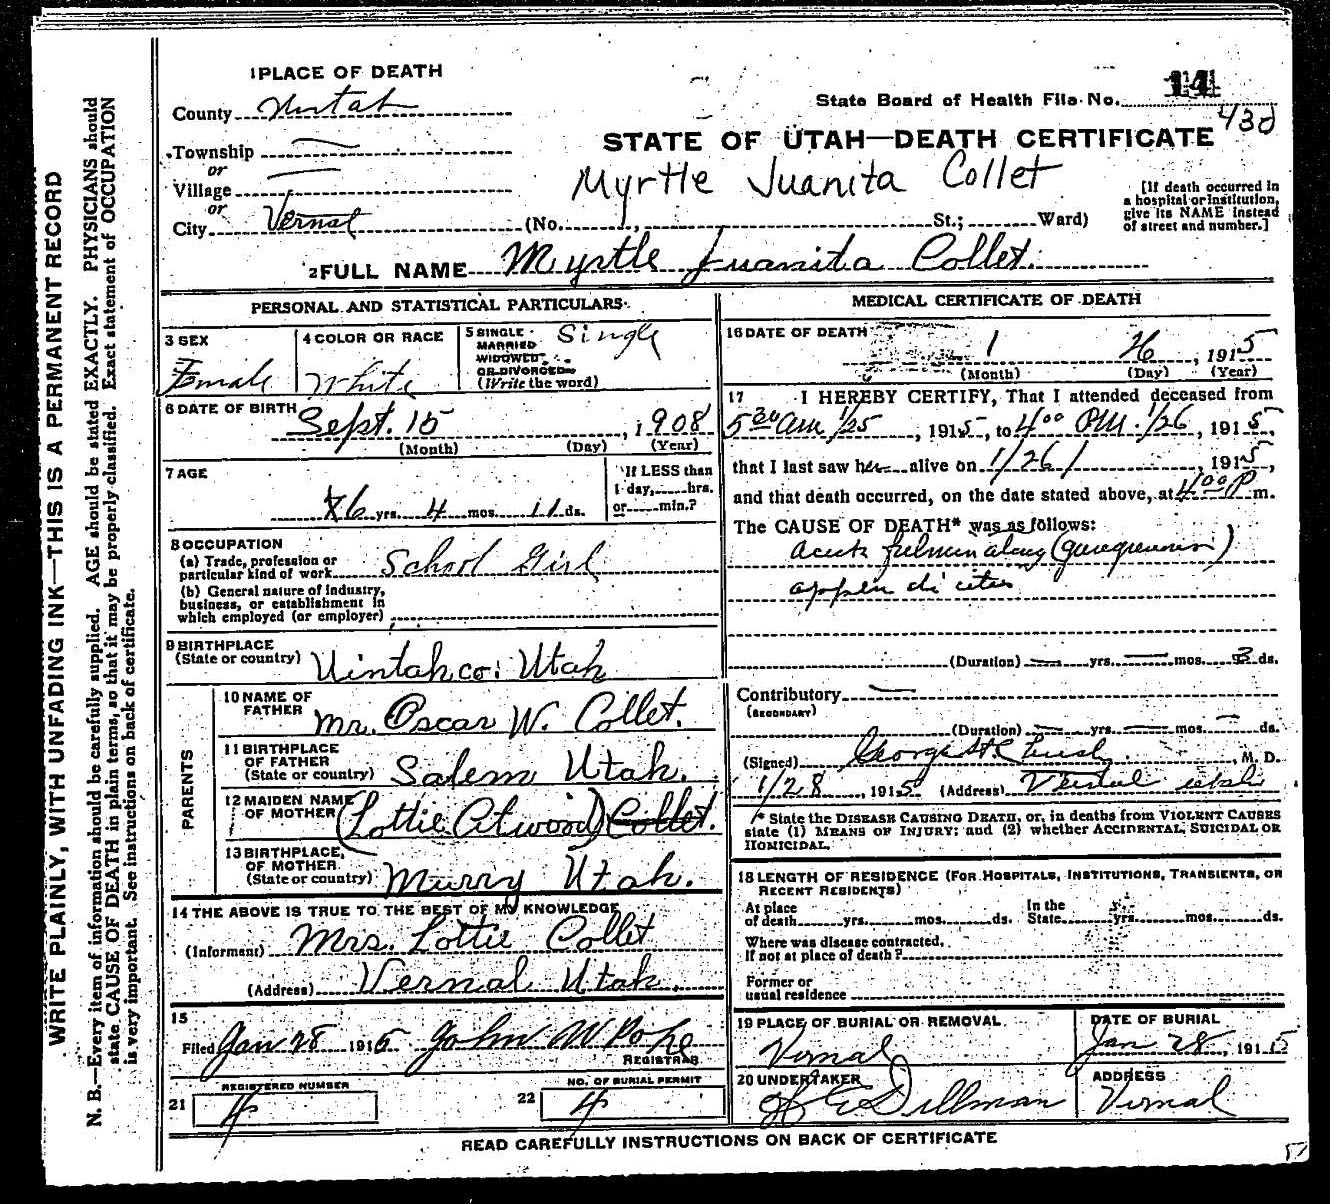 1 PLACE OF DEATH
County Uintah
Township
or
Village
or
City Vernal (No. , St.; Ward)
State Board of Health File No. 14
430
STATE OF UTAH—DEATH CERTIFICATE
Myrtle Juanita Collet
[If death occurred in
a hospital or institution,
give its NAME instead
of street and number.]
2 FULL NAME Myrtle Juanita Collet.
PERSONAL AND STATISTICAL PARTICULARS
3 SEX
Female
4 COLOR OR RACE
White
5 SINGLE
MARRIED
WIDOWED
OR DIVORCED
(Write the word)
Single
6 DATE OF BIRTH Sept. 15, 1908
(Month) (Day) (Year)
7 AGE
6 yrs. 4 mos. 11 ds.
If LESS than
1 day, hrs.
or min.?
8 OCCUPATION
(a) Trade, profession or
particular kind of work School Girl
(b) General nature of industry,
business, or establishment in
which employed (or employer)
9 BIRTHPLACE
(State or country) Uintah co: Utah
PARENTS
10 NAME OF
FATHER Mr. Oscar W. Collet.
11 BIRTHPLACE
OF FATHER
(State or country) Salem Utah.
12 MAIDEN NAME
OF MOTHER (Lottie Atwood) Collet.
13 BIRTHPLACE,
OF MOTHER
(State or country) Murry Utah.
14 THE ABOVE IS TRUE TO THE BEST OF MY KNOWLEDGE
(Informant) Mrs. Lottie Collet
(Address) Vernal Utah.
15
Filed Jan 28 1915 John W Poke
REGISTRAR
REGISTERED NUMBER
21 4
NO. OF BURIAL PERMIT
22 4
MEDICAL CERTIFICATE OF DEATH
16 DATE OF DEATH
1 26, 1915
(Month) (Day) (Year)
17 I HEREBY CERTIFY, That I attended deceased from
5 30 AM 1/25, 1915, to 4 00 PM. 1/26, 1915,
that I last saw her alive on 1/26/, 1915,
and that death occurred, on the date stated above, at 4 00 P m.
The CAUSE OF DEATH* was as follows:
acute
appendicitis
(Duration) yrs. mos. 3 ds.
Contributory
(SECONDARY)
(Duration) yrs. mos. ds.
(Signed) George, M. D.
1/28, 1915 (Address) Vernal Utah
* State the DISEASE CAUSING DEATH, or, in deaths from VIOLENT CAUSES
state (1) MEANS OF INJURY; and (2) whether ACCIDENTAL, SUICIDAL OR
HOMICIDAL.
18 LENGTH OF RESIDENCE (FOR HOSPITALS, INSTITUTIONS, TRANSIENTS, OR
RECENT RESIDENTS)
At place
of death yrs. mos. ds.
In the
State yrs. mos. ds.
Where was disease contracted,
If not at place of death?
Former or
usual residence
19 PLACE OF BURIAL OR REMOVAL
Vernal
DATE OF BURIAL
Jan 28, 1915
20 UNDERTAKER
Dillman
ADDRESS
Vernal
READ CAREFULLY INSTRUCTIONS ON BACK OF CERTIFICATE
WRITE PLAINLY, WITH UNFADING INK—THIS IS A PERMANENT RECORD
N. B.—Every item of information should be carefully supplied. AGE should be stated EXACTLY. PHYSICIANS should
state CAUSE OF DEATH in plain terms, so that it may be properly classified. Exact statement of OCCUPATION
is very important. See instructions on back of certificate.